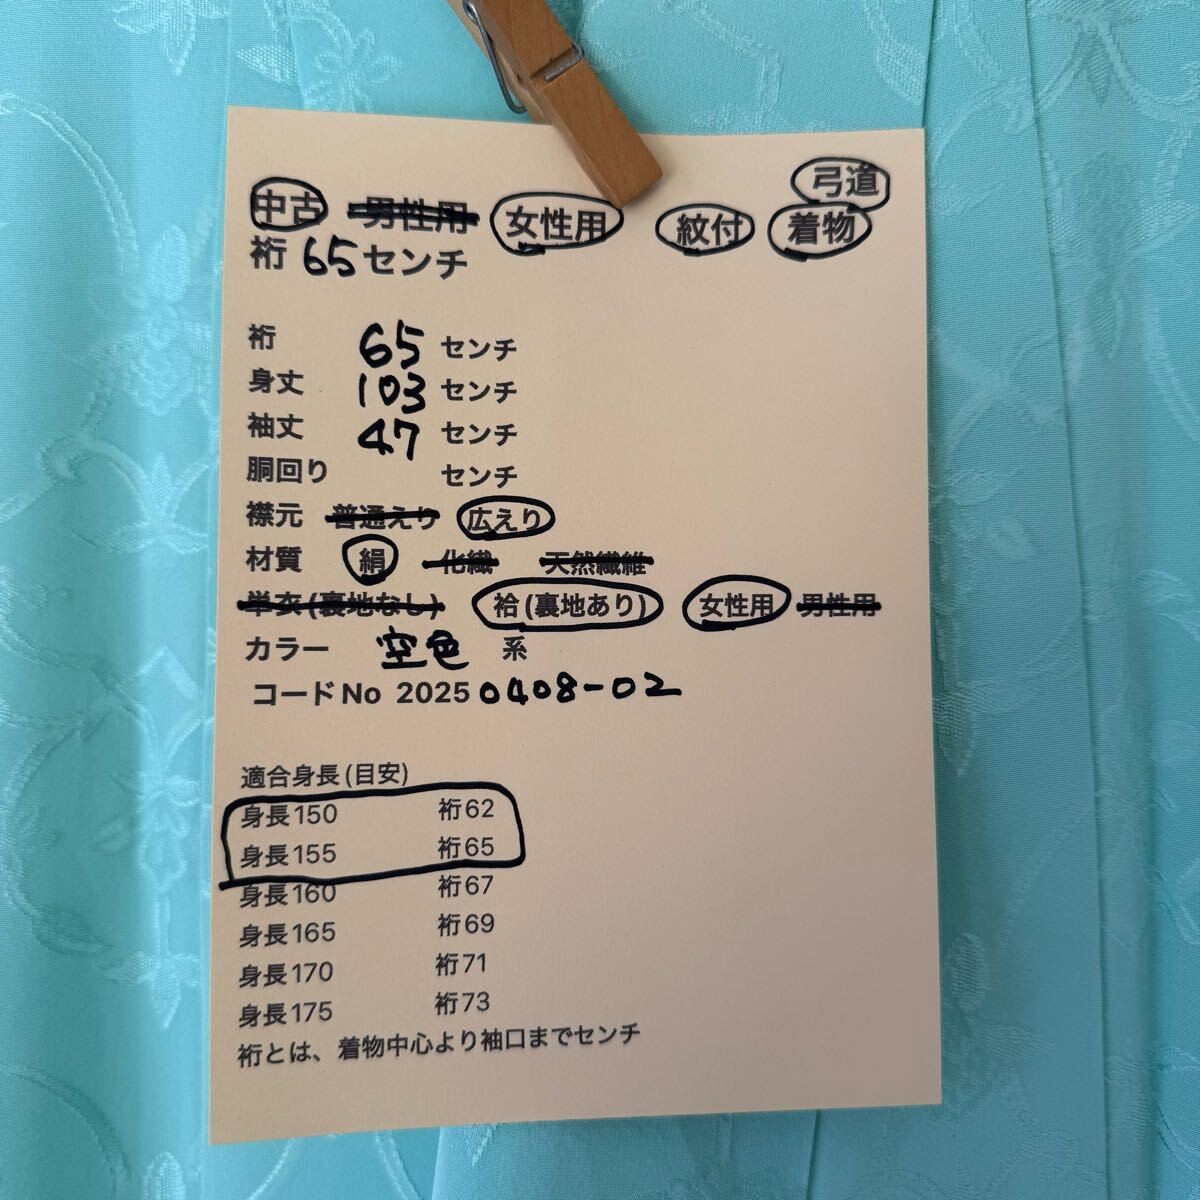 弓道
中古 男性用 女性用 紋付 着物
裄 65 センチ
裄 65 センチ
身丈 103 センチ
袖丈 47 センチ
胴回り センチ
襟元 普通えり 広えり
材質 絹 化繊 天然繊維
単衣(裏地なし) 袷(裏地あり) 女性用 男性用
カラー 空色 系
コードNo 20250408-02
適合身長(目安)
身長150 裄62
身長155 裄65
身長160 裄67
身長165 裄69
身長170 裄71
身長175 裄73
裄とは、着物中心より袖口までセンチ